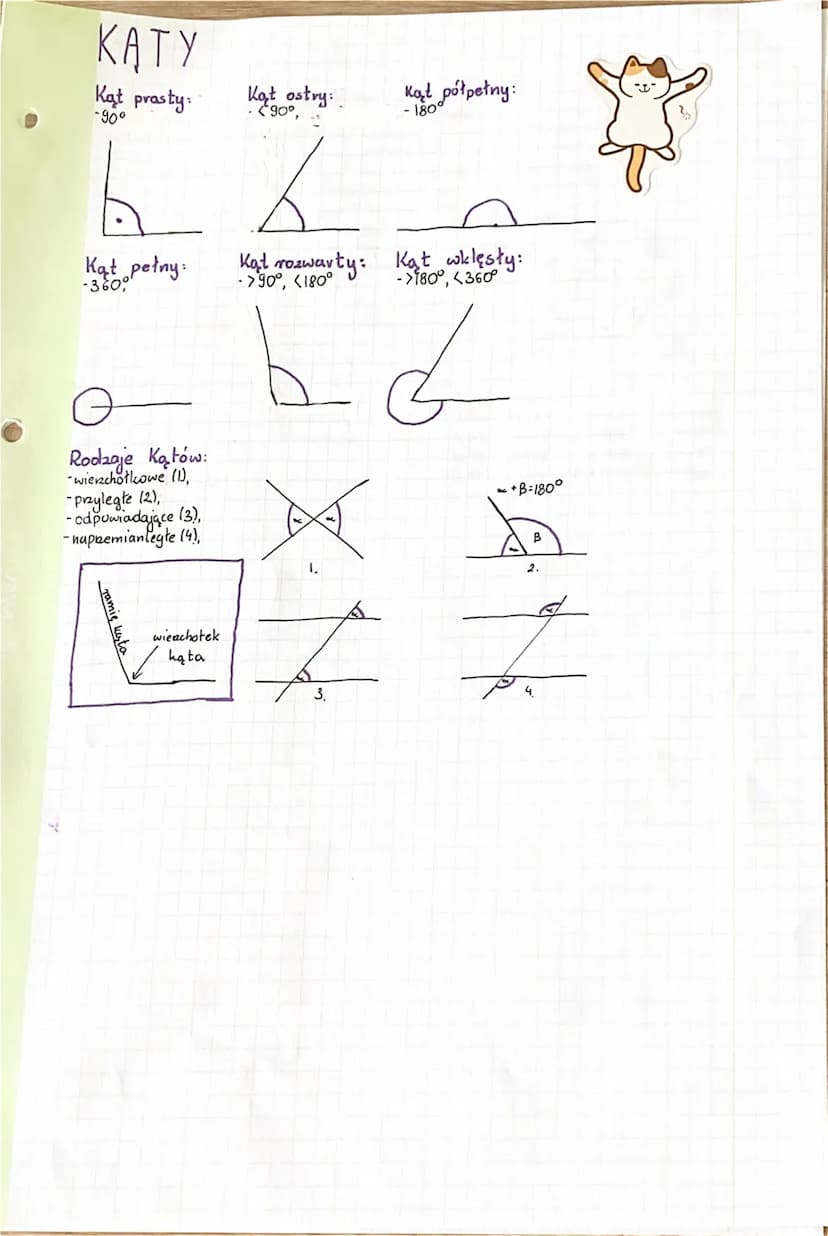 KĄTY
Kąt prosty:
-90°
Kąt ostry:
-<90°,
Kąt półpełny:
-180°
Kąt pełny:
-360°,
Kąt rozwarty:
->90°, <180°
Kąt wklęsły:
->180°, <360°
Rodzaje Kątów:
-wierzchołkowe (1),
-przyległe (2),
-odpowiadające (3),
-naprzemianległe (4),
α α
1.
α+B=180°
α B
2.
ramię kąta
wierzchołek
kąta
α
α
3.
α
α
4.